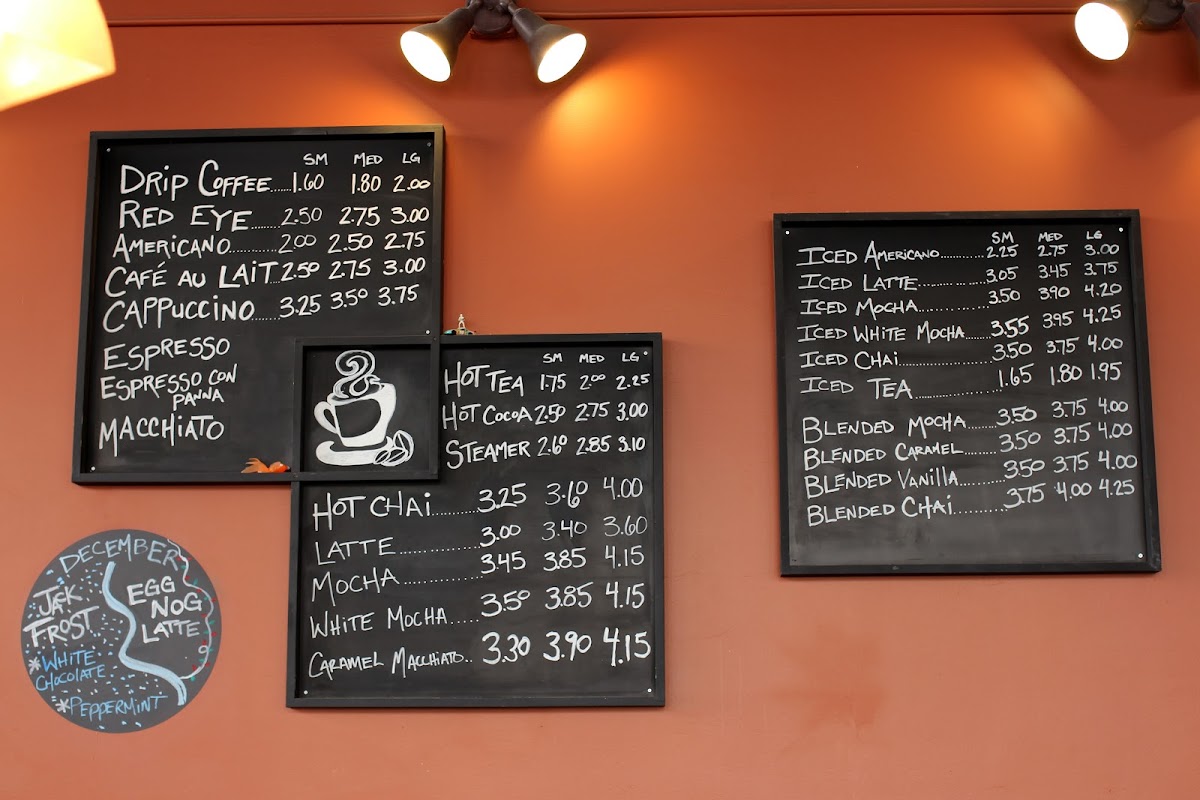 SM MED LG
DRIP COFFEE.......1.60 1.80 2.00
RED EYE.......2.50 2.75 3.00
AMERICANO...........2.00 2.50 2.75
CAFÉ AU LAIT..2.50 2.75 3.00
CAPPUCCINO.....3.25 3.50 3.75
ESPRESSO
ESPRESSO CON
PANNA
MACCHIATO
SM MED LG
HOT TEA 1.75 2.00 2.25
HOT COCOA 2.50 2.75 3.00
STEAMER 2.60 2.85 3.10
HOT CHAI.........3.25 3.60 4.00
LATTE................3.00 3.40 3.60
MOCHA................3.45 3.85 4.15
WHITE MOCHA.....3.50 3.85 4.15
CARAMEL MACCHIATO..3.30 3.90 4.15
SM MED LG
ICED AMERICANO...........2.25 2.75 3.00
ICED LATTE................3.05 3.45 3.75
ICED MOCHA................3.50 3.90 4.20
ICED WHITE MOCHA.......3.55 3.95 4.25
ICED CHAI..................3.50 3.75 4.00
ICED TEA.................1.65 1.80 1.95
BLENDED MOCHA......3.50 3.75 4.00
BLENDED CARAMEL.......3.50 3.75 4.00
BLENDED VANILLA.........3.50 3.75 4.00
BLENDED CHAI..........3.75 4.00 4.25
DECEMBER
JACK
FROST
*WHITE
CHOCOLATE
*PEPPERMINT
EGG
NOG
LATTE